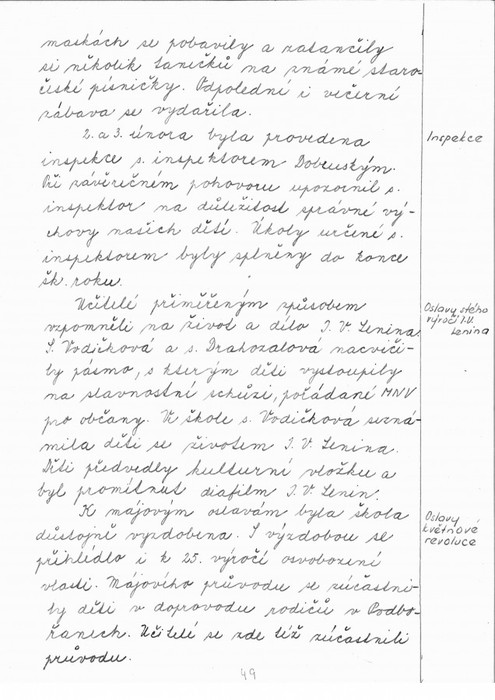 maskách se pobavily a zatančily
si několik tanečků na známé staro-
české písničky. Odpolední i večerní
zábava se vydařila.
2. a 3. února byla provedena
Inspekce
inspekce s. inspektorem Dobeuským.
Při závěrečném pohovoru upozornil s.
inspektor na důležitost správné vý-
chovy našich dětí. Úkoly určené s.
inspektorem byly splněny do konce
šk. roku.
Učitelé přiměřeným způsobem
Oslavy stého
výročí V.I.
Lenina
vzpomněli na život a dílo I. V. Lenina.
S. Vodičková a s. Drahozalová nacviči-
ly pásmo, s kterým děti vystoupily
na slavnostní schůzi, pořádané MNV
pro občany. Ve škole s. Vodičková sezná-
mila děti se životem I. V. Lenina.
Děti předvedly kulturní vložku a
byl promítnut diafilm I. V. Lenin.
K májovým oslavám byla škola
Oslavy
květnové
revoluce
důstojně vyzdobena. S výzdobou se
přihlédlo i k 25. výročí osvobození
vlasti. Májového průvodu se zúčastni-
ly děti v doprovodu rodičů v Podbo-
řanech. Učitelé se zde též zúčastnili
průvodu.
49